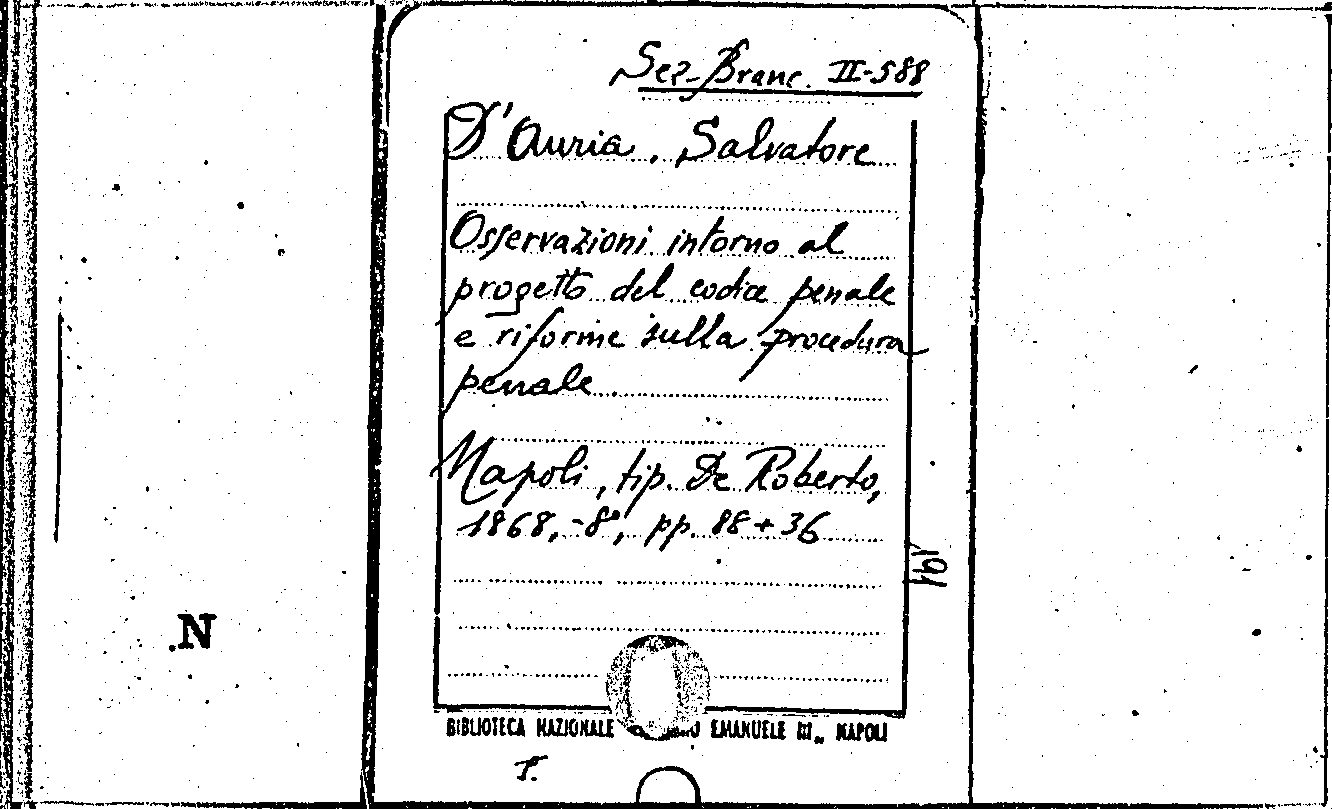 Sez. Branc. II-588
D'Auria, Salvatore
Osservazioni intorno al
progetto del codice penale
e riforme sulla procedura
penale.
Napoli, tip. De Roberto,
1868, -8°, pp. 88+36
N
BIBLIOTECA NAZIONALE EMANUELE III„ NAPOLI